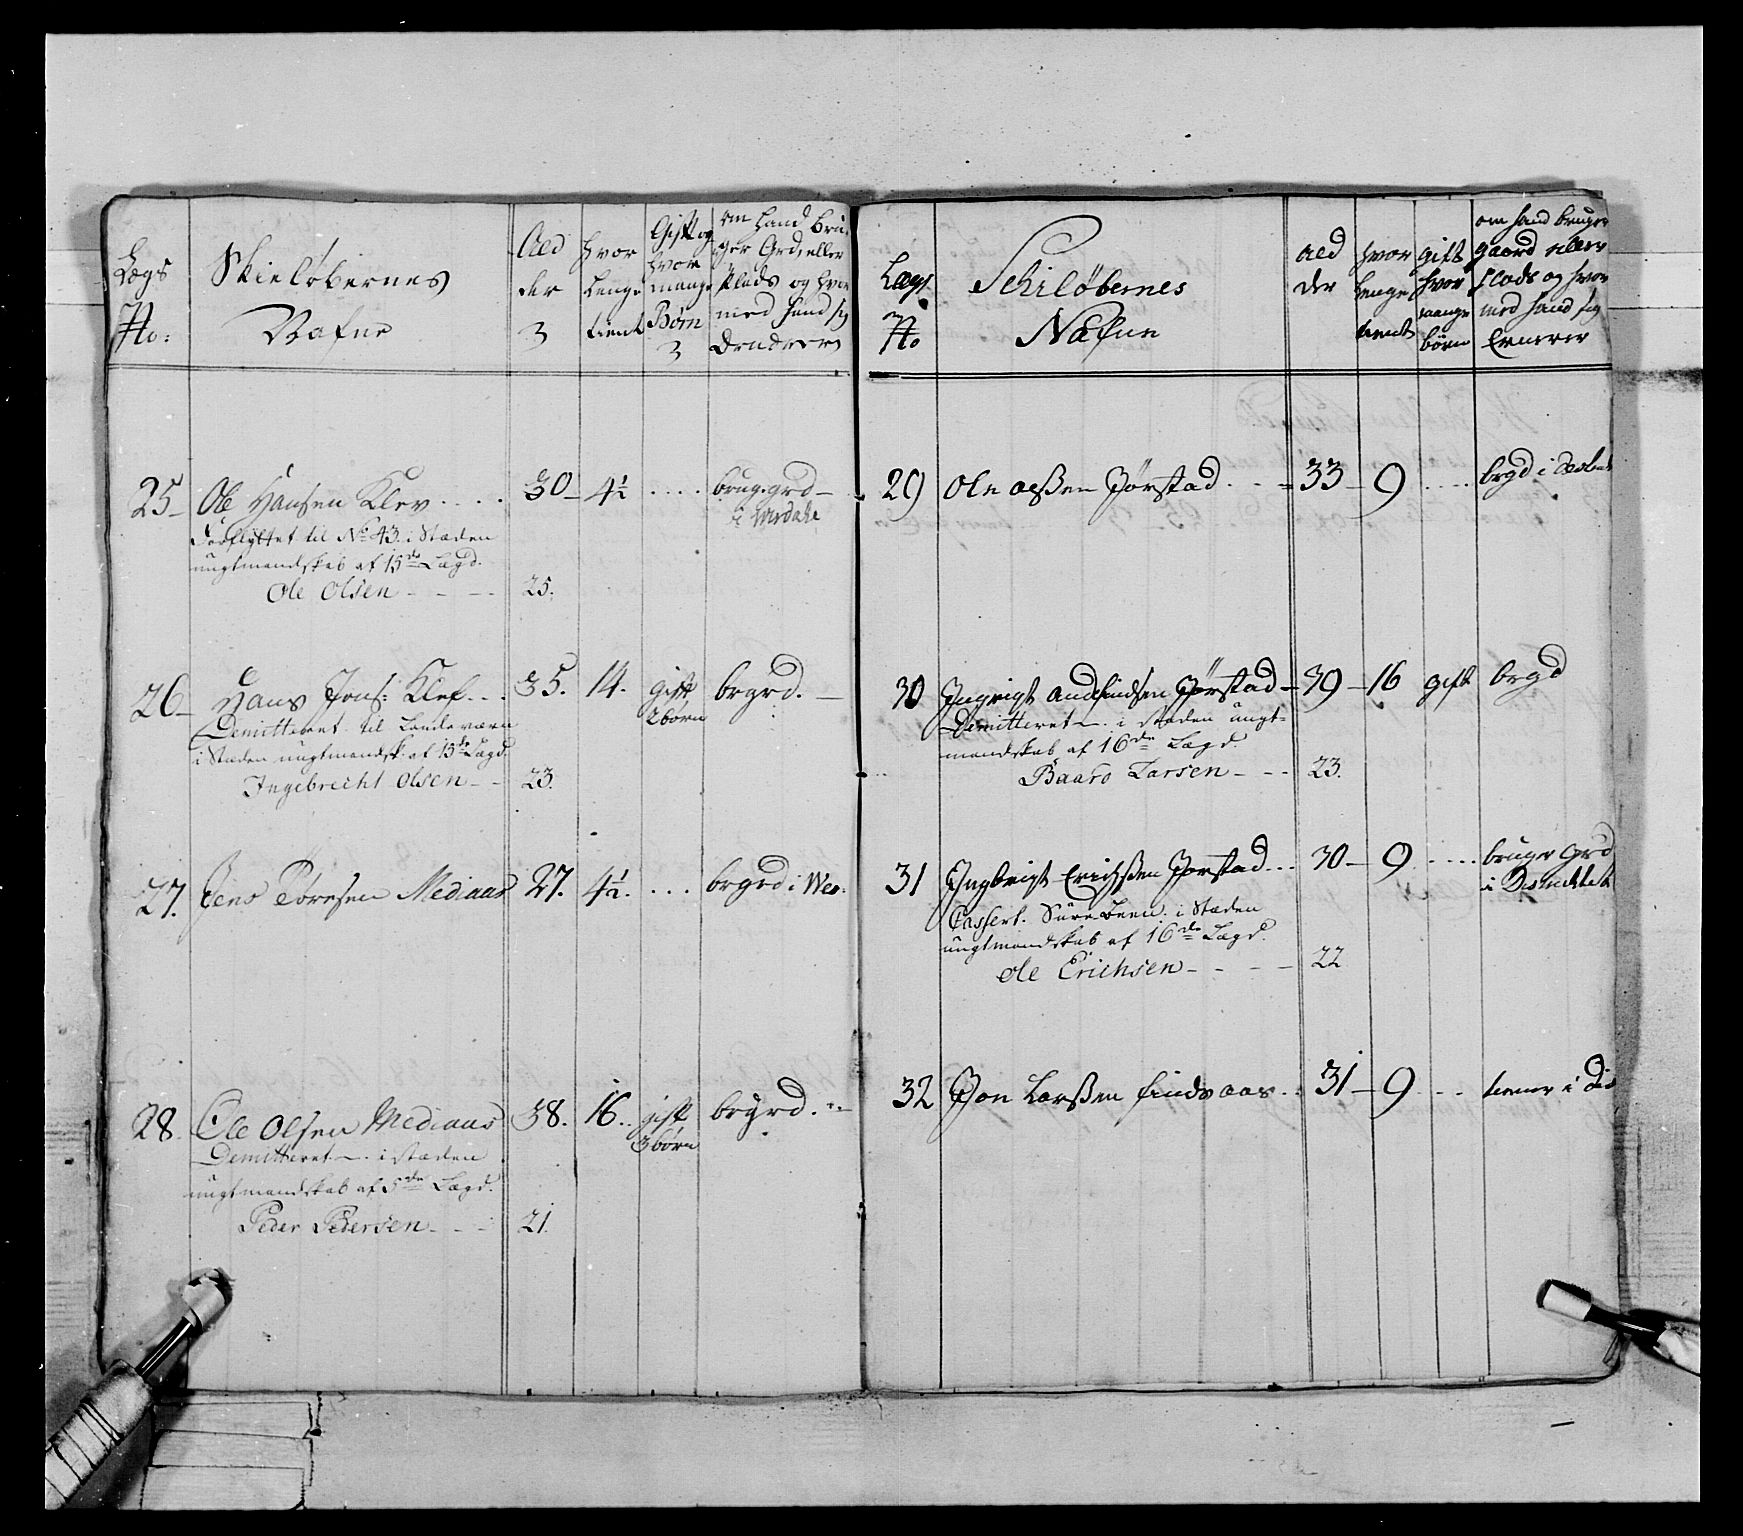 Lægs
No:
Skieløbernes
Nafne
Alder
hvor
Lenge
tient
Gift og
hvor
mange
Børn
om hand bru-
ger Grd eller
Plads og hvor
med hand sig
25 Ole Hansen Klev 30 4½ brug. grd
i Werdahl
Forflyttet til No 43. i Stæden
ungtmandskab af 15de Lægd.
Ole Olsen 25.
26 Hans Jons: Klef 35. 14. gift brgrd.
2 børn
Demitteret til Landeværn
i Stæden ungtmandsk. af 15de Lægd
Ingebrecht Olsen 23.
27. Jens Toresen Mediaas 27. 4½ brgrd i Wer:
28. Ole Olsen Mediaas 38. 16. gift brgrd.
3 børn
Demitteret i stæden
ungtmandskab af 5de Lægd.
Peder Pedersen 21.
Lægs
No
Schiløbernes
Nafne
alder
hvor
lenge
tient
gift
hvor
mange
børn
om hand bruger
gaard eller
plads og hvor
med hand sig
Ernerer
29 Ole Olßen Jørstad 33 9 brgd i
30 Ingrigt Jørstad 39 16 gift brgd
Demitteret i stæden ungt-
mandskab af 16de Lægd.
Baaro Larsen 23.
31 Ingbrigt Erichßen Jørstad 30 9 bruger grd
i
Casseret. Sure Been. i Stæden
ungtmandskab af 16de Lægd.
Ole Erichsen 22
32 Jon Larßen findsaas 31 9 tiener i